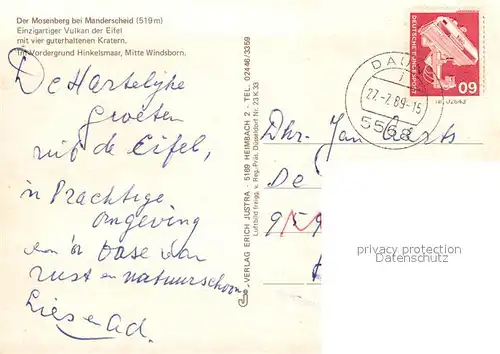 Der Mosenberg bei Manderscheid (519 m)
Einzigartiger Vulkan der Eifel
mit vier guterhaltenen Kratern.
Im Vordergrund Hinkelsmaar, Mitte Windsborn.
De Hartelijke
groeten
uit de Eifel,
in Prachtige
omgeving
een oase van
rust en natuurschoon
Lies en Ad.
VERLAG ERICH JUSTRA · 5169 HEIMBACH 2 · TEL. 02446/3359
Luftbild freigg. v. Reg.-Präs. Düsseldorf Nr. 23 K 33
DEUTSCHE BUNDESPOST
60
DAUN
27.-7.89-15
5568
Dhr. Jan Aarts
De
privacy protection